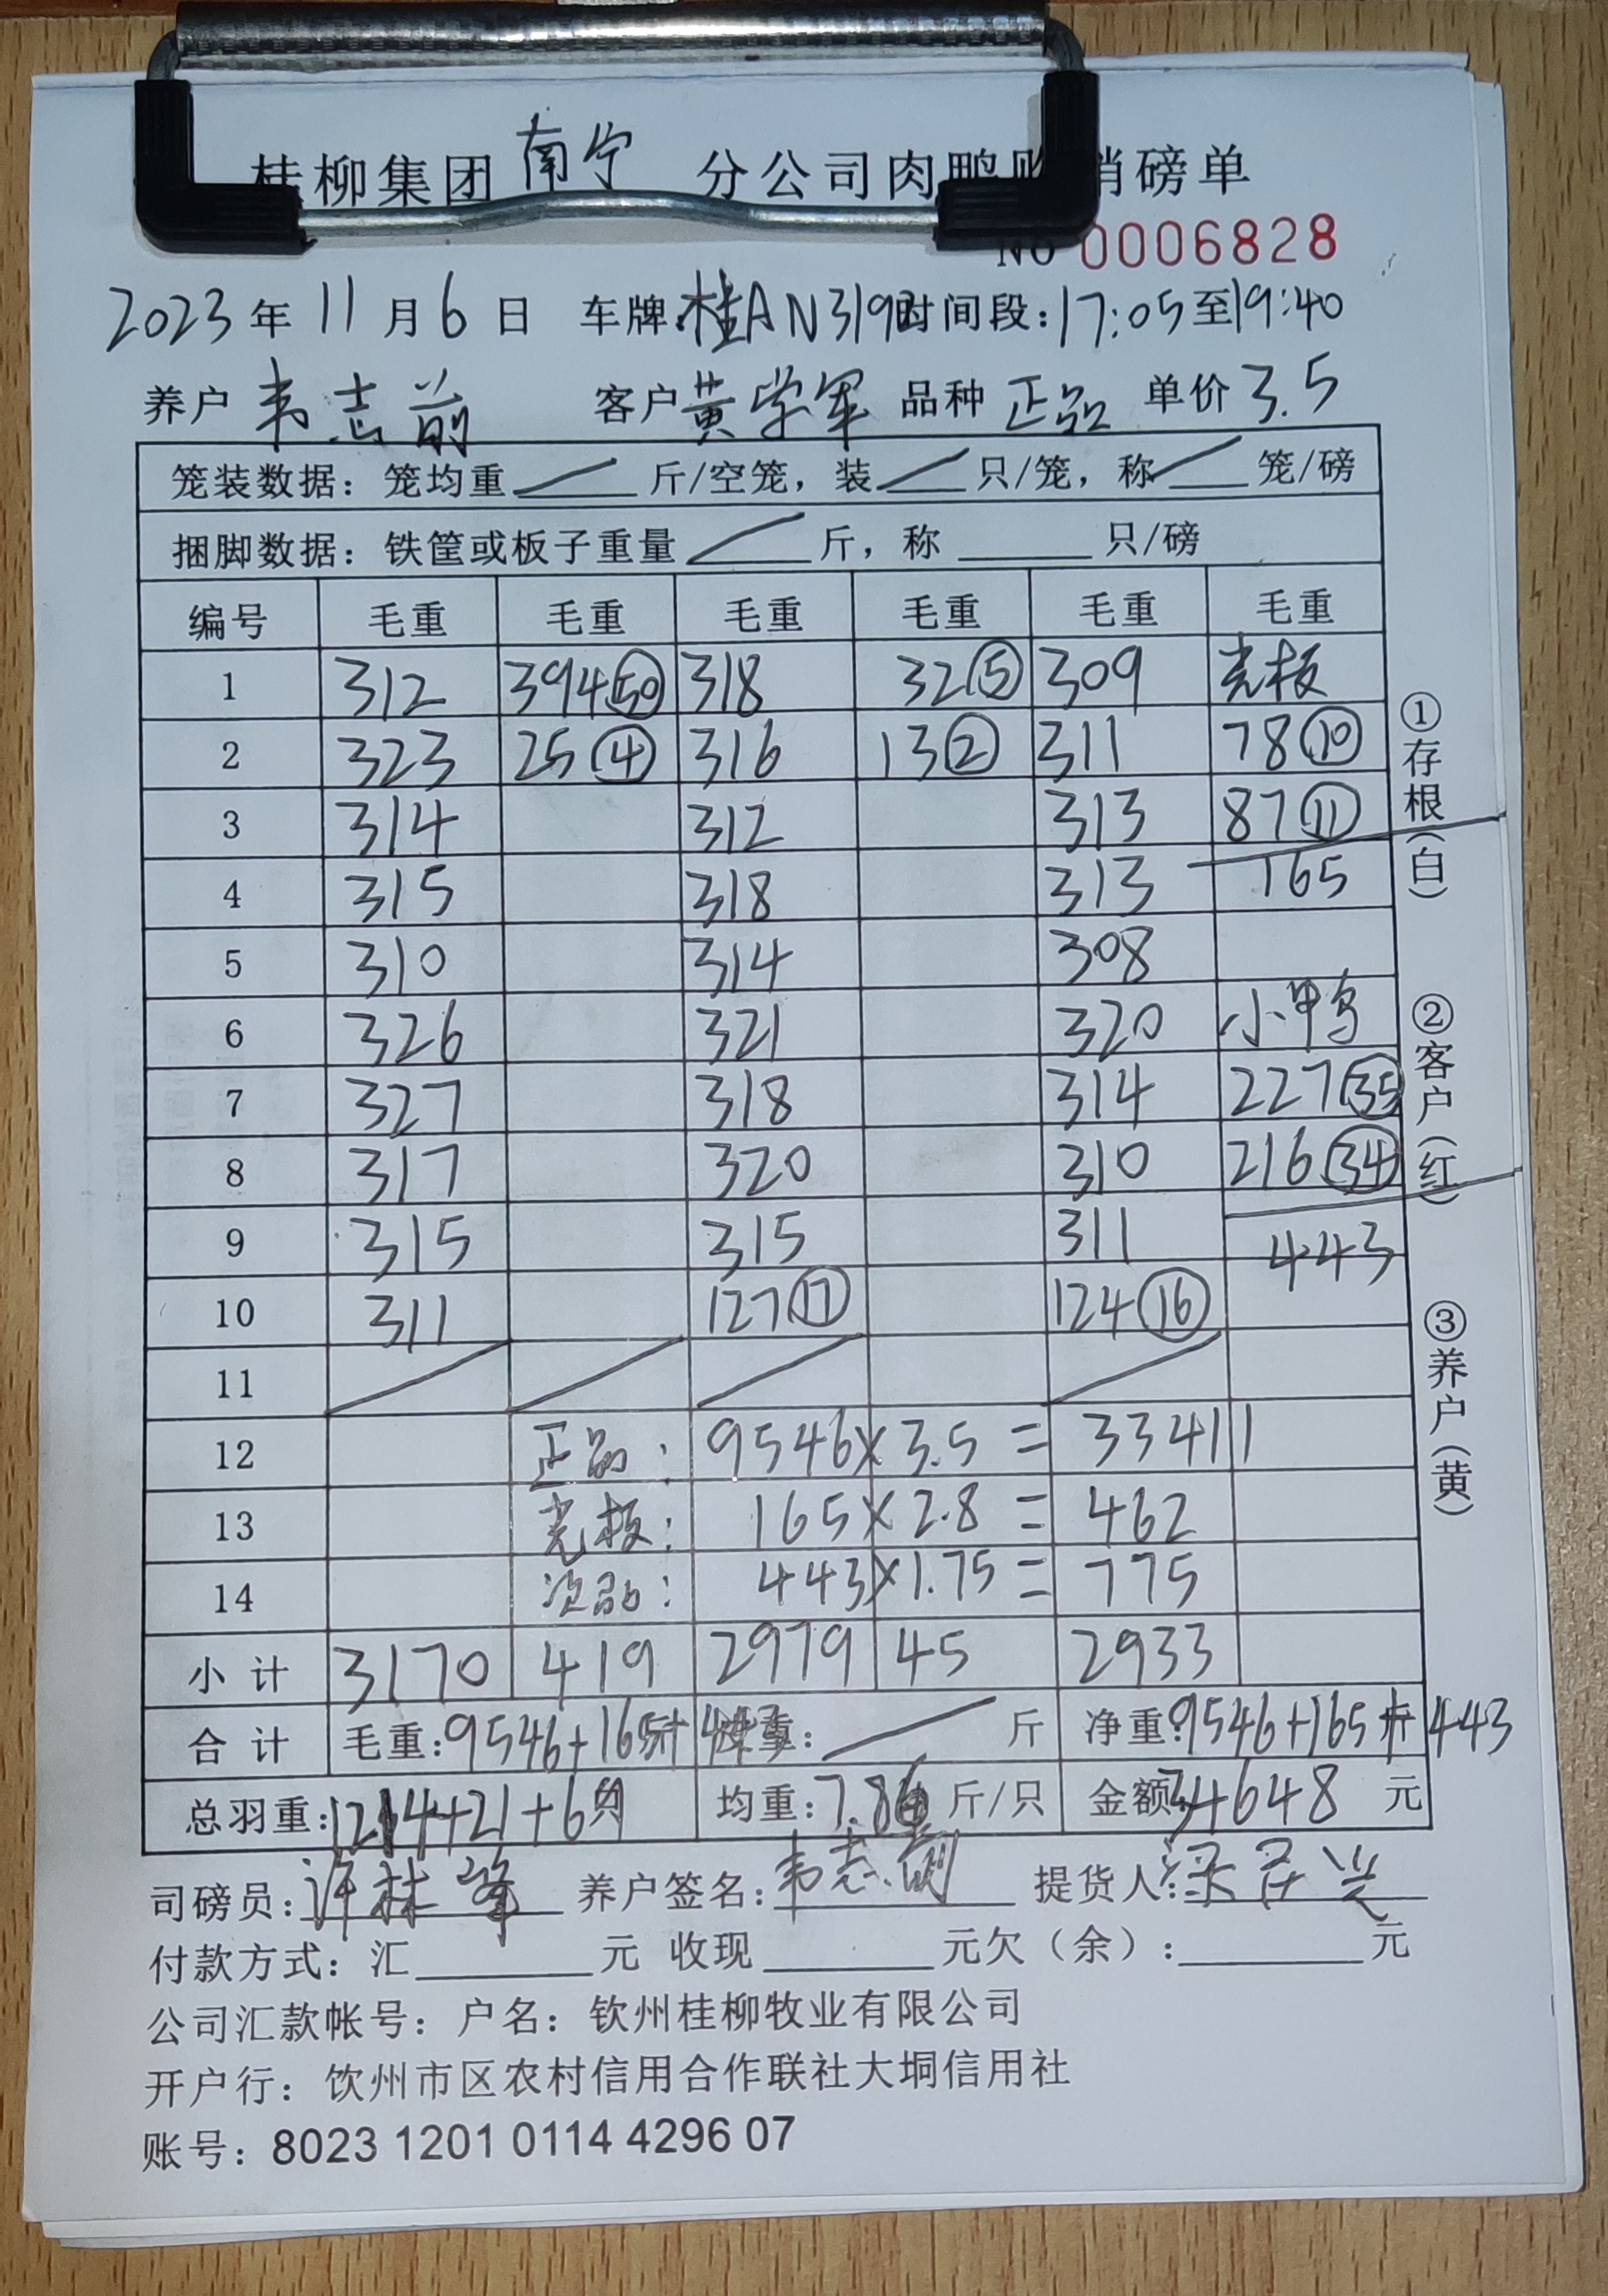 桂柳集团 南宁 分公司肉鸭购销磅单
No 0006828
2023 年 11 月 6 日 车牌:桂AN319 时间段:17:05至19:40
养户 韦志前 客户 黄学军 品种 正品 单价 3.5
笼装数据: 笼均重 斤/空笼, 装 只/笼, 称 笼/磅
捆脚数据: 铁筐或板子重量 斤, 称 只/磅
编号 毛重 毛重 毛重 毛重 毛重 毛重
1 312 394㊿ 318 32⑤ 309 光板
2 323 25④ 316 13② 311 78⑩
3 314 312 313 87⑪
4 315 318 313 165
5 310 314 308
6 326 321 320 小鸭
7 327 318 314 227㉟
8 317 320 310 216㉞
9 315 315 311 443
10 311 127⑰ 124⑯
11
12 正品: 9546×3.5= 33411
13 光板: 165×2.8= 462
14 次品: 443×1.75= 775
小计 3170 419 2979 45 2933
合计 毛重:9546+165+443 重: 斤 净重:9546+165+443
总羽重:1214+21+69 均重:7.86 斤/只 金额34648 元
司磅员:许林峰 养户签名:韦志前 提货人:
付款方式: 汇 元 收现 元欠(余): 元
公司汇款帐号: 户名: 钦州桂柳牧业有限公司
开户行: 钦州市区农村信用合作联社大垌信用社
账号: 8023 1201 0114 4296 07
①存根(白)
②客户(红)
③养户(黄)